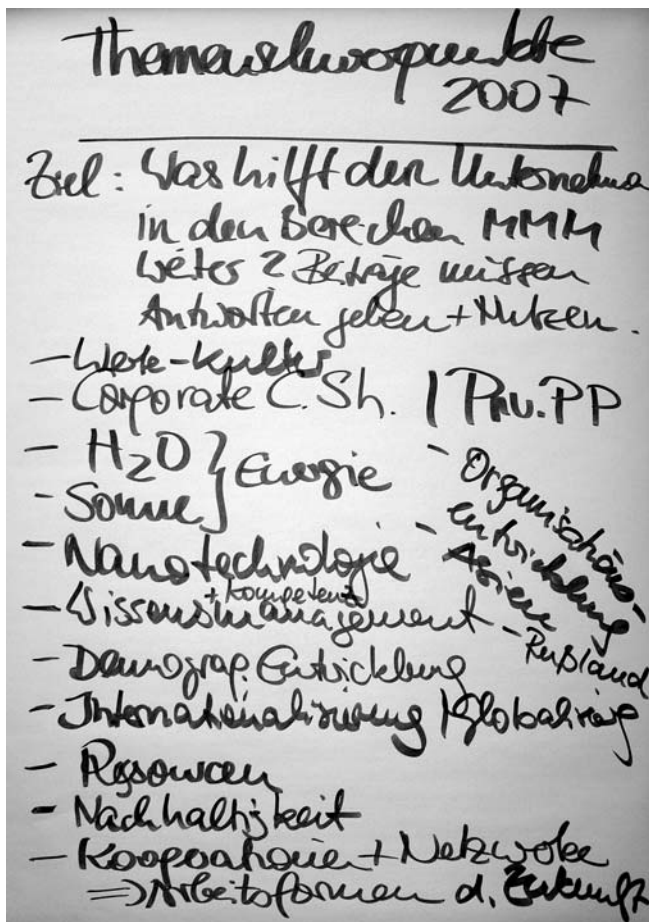 Themenschwerpunkte
2007
Ziel: Was hilft den Unternehmen
in den Bereichen MMM
weiter? Beiträge müssen
Antworten geben + Nutzen.
- Werte-Kultur
- Corporate C. Sh. / Priv. PP
- H₂O } Energie
- Sonne
- Nanotechnologie
+ Kompetenz
- Wissensmanagement
- Demograp. Entwicklung
- Internationalisierung / Globalisierung
- Ressourcen
- Nachhaltigkeit
- Kooperationen + Netzwerke
⇒ Arbeitsformen d. Zukunft
- Organisations-
entwicklung
- Asien
- Rußland